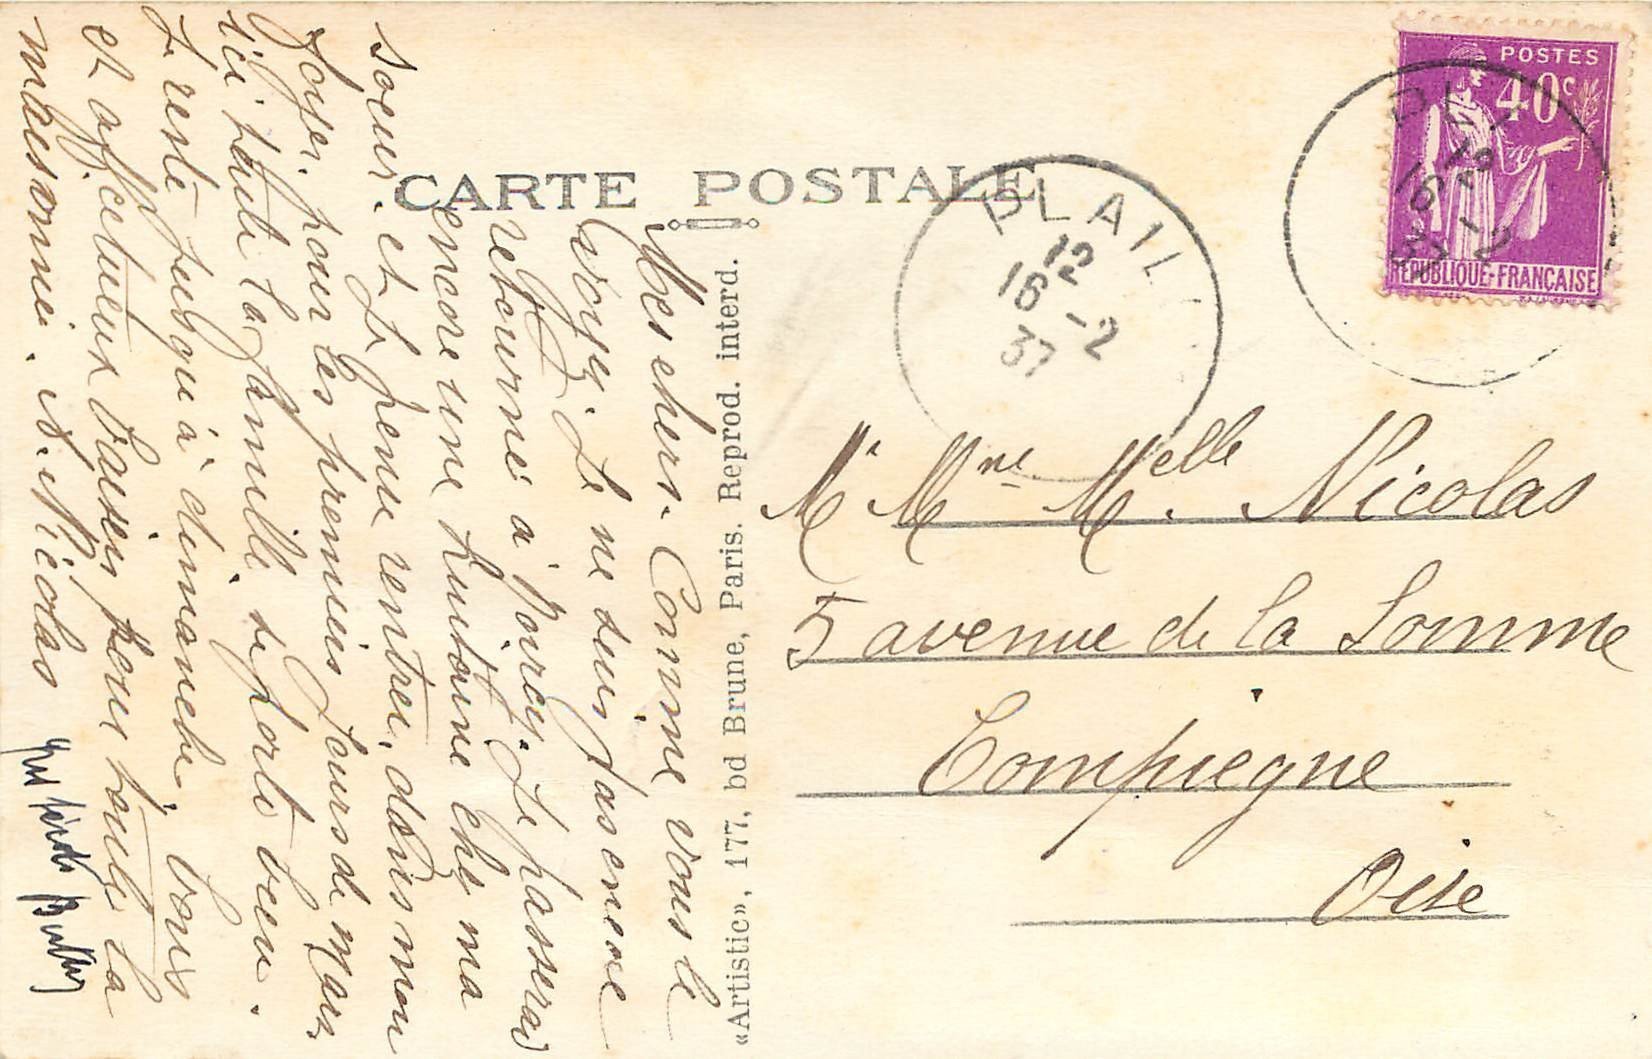 CARTE POSTALE
Mes chers. Comme vous le
voyez. Je ne suis pas encore
retourné à Noircy. Je passerai
encore une huitaine chez ma
soeur. et Je pense rentrer. dans mon
foyer. pour les premiers Jours de Mars
ici toute la famille se porte bien.
Je reste jusqu'à dimanche. bons
et affectueux baisers pour toute la
maisonnée. N. Nicolas
«Artistic», 177, bd Brune, Paris. Reprod. interd.
POSTES
40c
REPUBLIQUE-FRANÇAISE
12
16 -2
37
BLAI
12
16 -2
37
Mr Mme Melle. Nicolas
5 avenue de la Somme
Compiegne
Oise